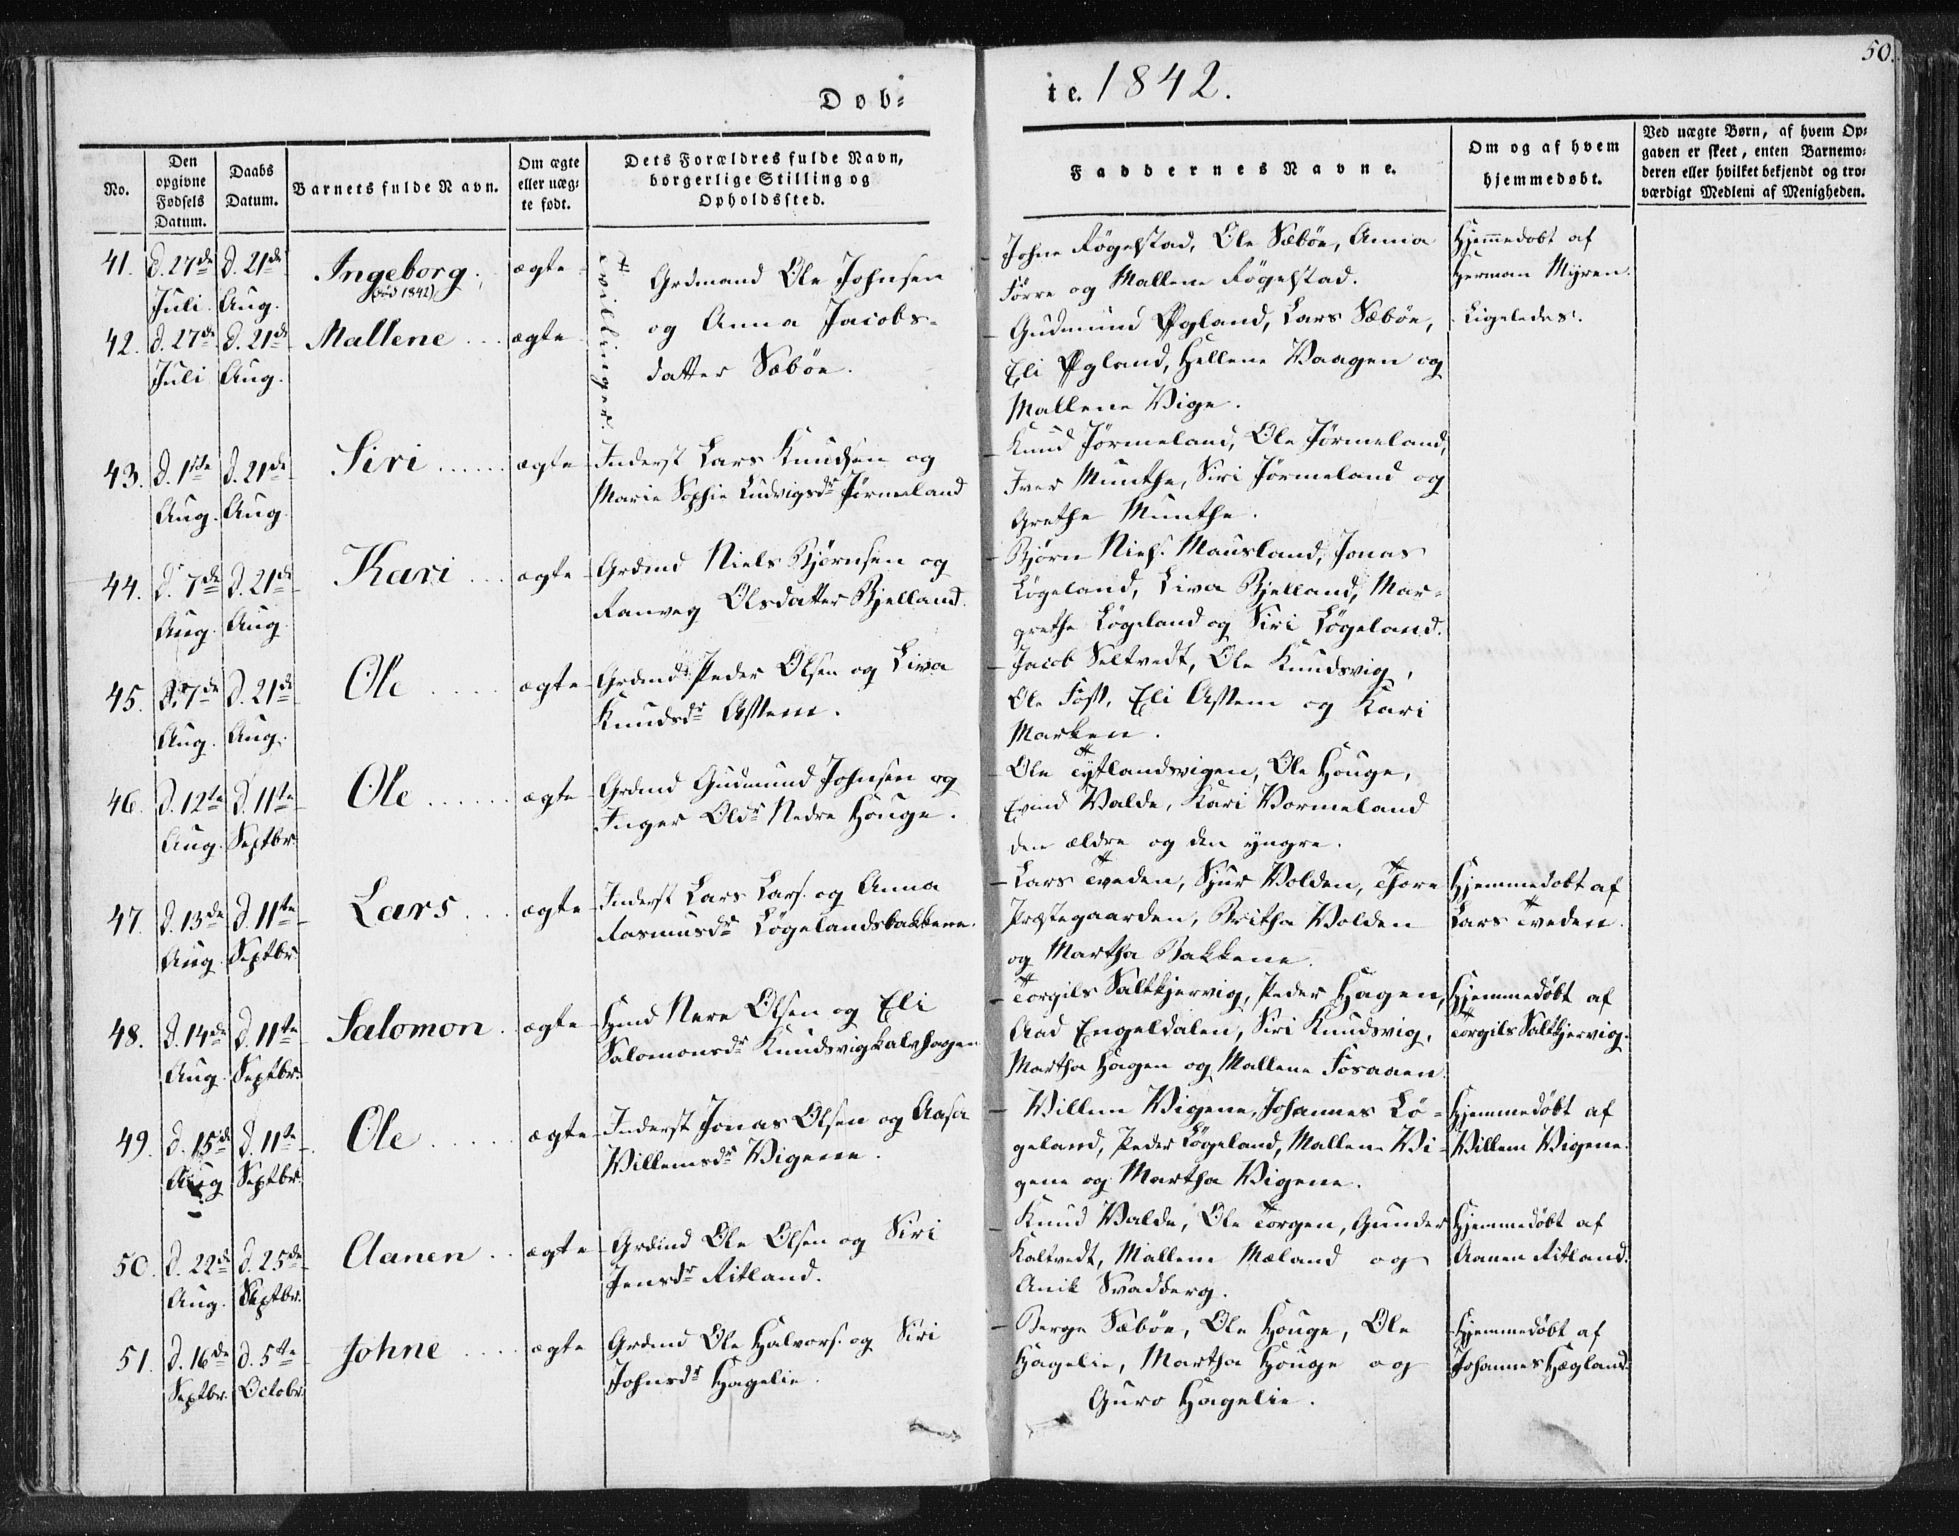 50.
Døb-
te. 1842.
No.
Den
opgivne
Fødsels
Datum.
Daabs
Datum.
Barnets fulde Navn.
Om ægte
eller uæg-
te født.
Dets Forældres fulde Navn,
borgerlige Stilling og
Opholdssted.
Faddernes Navne.
Om og af hvem
hjemmedøbt.
Ved uægte Børn, af hvem Op-
gaven er skeet, enten Barnemo-
deren eller hvilket bekjendt og tro-
værdigt Medlem af Menigheden.
41. d. 27de Juli d. 21de Aug. Ingeborg. ægte
(død 1842)
Tvillinger.
Grdmand Ole Johnsen
og Anna Jacobs-
datter Sæbøe.
Johne Røgelstad, Ole Sæbøe, Anna
Førre og Mallene Røgelstad.
Hjemmedøbt af
Herman Myren.
42. d. 27de Juli d. 21de Aug. Mallene ægte
Gudmund Øgland, Lars Sæbøe,
Eli Øgland, Hellene Vaagen og
Mallene Vige.
Ligeledes.
43. d. 1ste Aug. d. 21de Aug. Siri ægte
Inderst Lars Knudsen og
Marie Sophie Ludvigsdr Jørmeland
Knud Jørmeland, Ole Jørmeland,
Iver Munthe, Siri Jørmeland og
Grethe Munthe.
44. d. 7de Aug. d. 21de Aug. Kari ægte
Grdmd Niels Bjørnsen og
Ranveg Olsdatter Bjelland.
Bjørn Niels. Mausland, Jonas
Løgeland, Liva Bjelland, Mar-
grethe Løgeland og Siri Løgeland.
45. d. 7de Aug. d. 21de Aug. Ole ægte
Grdmd Peder Olsen og Liva
Knudsdr Østtem.
Jacob Seltvedt, Ole Knudsvig,
Ole Foss, Eli Østtem og Kari
Marken.
46. d. 12te Aug. d. 11te Septbr. Ole ægte
Grdmd Gudmund Johnsen og
Inger Olsdr Nedre Houge.
Ole Tytlandsvigen, Ole Houge,
Evind Valde, Kari Vormeland
den ældre og den yngre.
47. d. 13de Aug. d. 11te Septbr. Lars ægte
Inderst Lars Lars. og Anna
Rasmusdr Løgelandsbakkene.
Lars Tveden, Sjur Volden, Thore
Præstegaarden, Britha Volden
og Martha Bakkene.
Hjemmedøbt af
Lars Tveden.
48. d. 14de Aug. d. 11te Septbr. Salomon ægte
Hmd Nere Olsen og Eli
Salomonsdr Knudsvigkalvhagen
Torgils Saltkjervig, Peder Hagen,
Aad Engeldalen, Siri Knudsvig,
Martha Hagen og Mallene Fosaaen.
Hjemmedøbt af
Torgils Saltkjervig.
49. d. 15de Aug d. 11te Septbr. Ole ægte
Inderst Jonas Olsen og Aasa
Villemsdr Vigene.
Villem Vigene, Johannes Lø-
geland, Peder Løgeland, Mallene Vi-
gene og Martha Vigene.
Hjemmedøbt af
Villem Vigene.
50. d. 22de Aug. d. 25de Septbr. Aanen ægte
Grdmd Ole Olsen og Siri
Jensdr Ritland.
Knud Valde, Ole Torgen, Gunder
Kaltvedt, Mallene Mæland og
Anik Svadberg.
Hjemmedøbt af
Aanen Ritland.
51. d. 16de Septbr. d. 5te Octobr. Johne ægte
Grdmd Ole Halvors. og Siri
Johnsdr Hagelie.
Berge Sæbøe, Ole Houge, Ole
Hagelie, Martha Houge og
Guro Hagelie.
Hjemmedøbt af
Johannes Hægland.